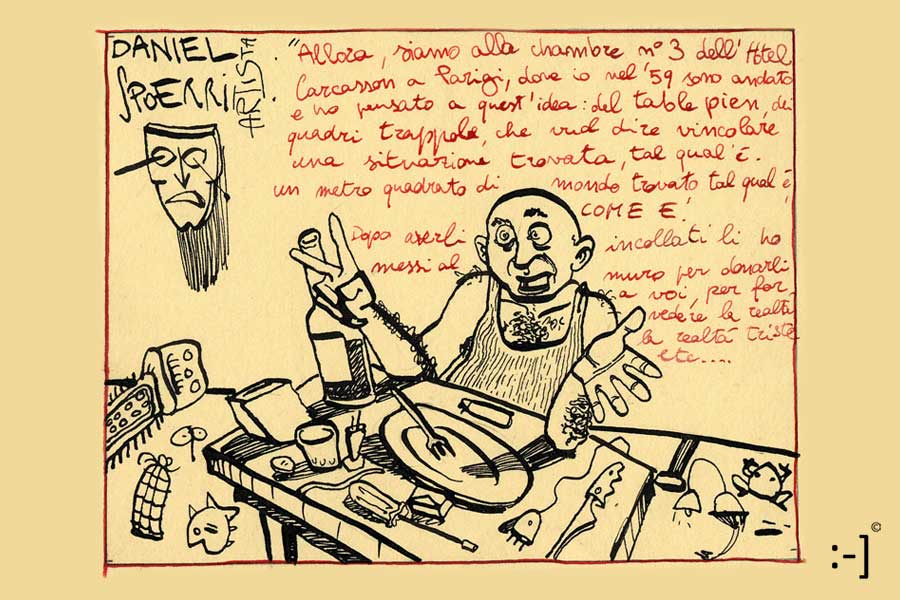 DANIEL
SPOERRI
ARTISTA
"Allora, siamo alla chambre n° 3 dell'Hotel
Carcasson a Parigi, dove io nel '59 sono andato
e ho pensato a quest'idea: del table pien, dei
quadri trappole, che vuol dire vincolare
una situazione trovata, tal qual'è.
un metro quadrato di mondo trovato tal qual è
COME E'!
Dopo averli incollati li ho
messi al muro per donarli
a voi, per far
vedere la realtà
la realtà triste
etc....
:-]
©